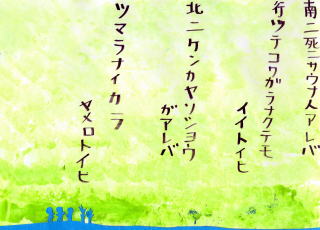 南ニ死ニサウナ人アレバ
行ッテコワガラナクテモ
イイトイヒ
北ニケンカヤソショウ
ガアレバ
ツマラナイカラ
ヤメロトイヒ